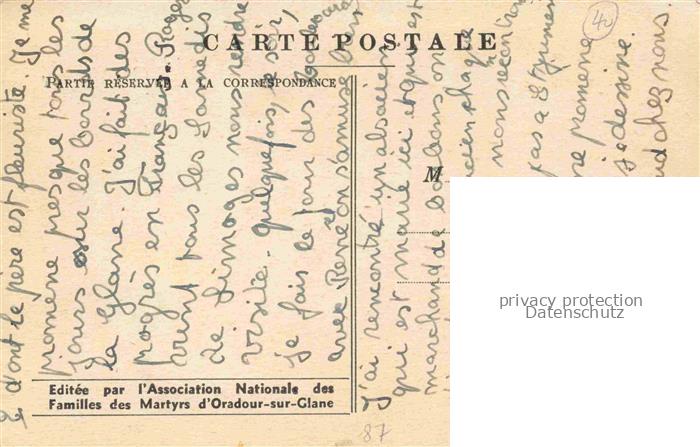 CARTE POSTALE
PARTIE RÉSERVÉE A LA CORRESPONDANCE
M
40
et dont le père est fleuriste. Je me
promène presque tous les
jours sur les bords de
la Glane. J'ai fait des
progrès en Français. Roger
vient tous les samedis
de Limoges nous rendre
visite. quelquefois, le soir,
je fais le tour des
avec René on s'amuse bien
J'ai rencontré un alsacien
qui est marié ici et qui est
marchand de bonbons on
nous
pas à St Junien
me promène
je dessine.
chez nous.
Editée par l'Association Nationale des
Familles des Martyrs d'Oradour-sur-Glane
87
privacy protection
Datenschutz